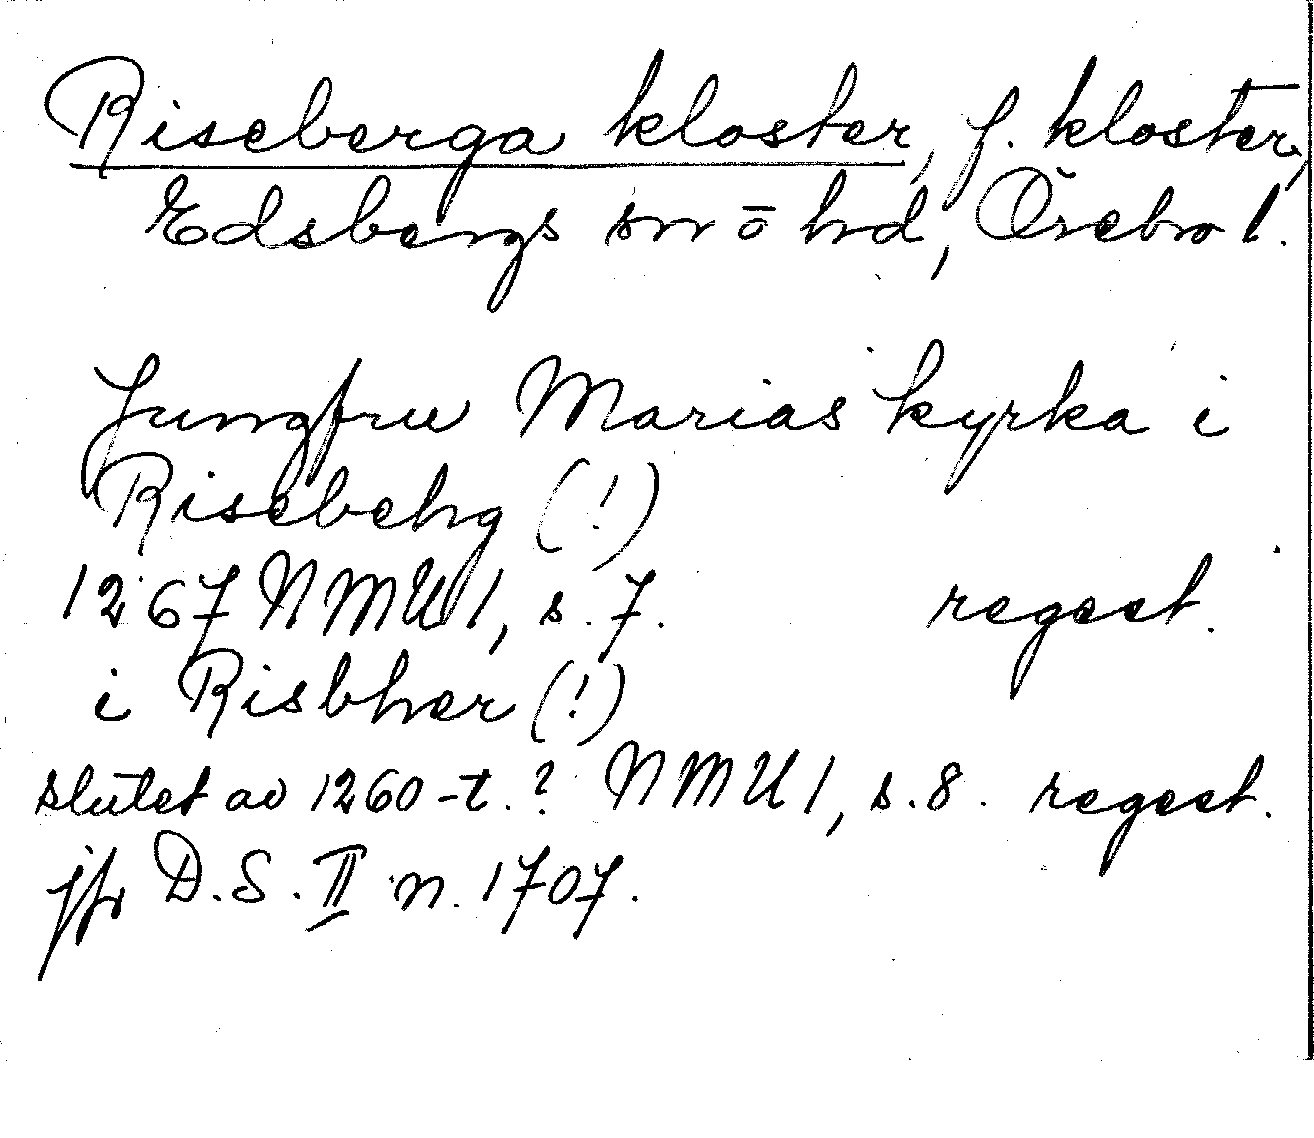 Riseberga kloster, f. kloster,
Edsbergs sn o hd, Örebro l.
Jungfru Marias kyrka i
Risebehg (!)
1267 NMU 1, s. 7. regest.
i Risbher (!)
slutet av 1260-t.? NMU 1, s. 8. regest.
jfr D.S. II n. 1707.